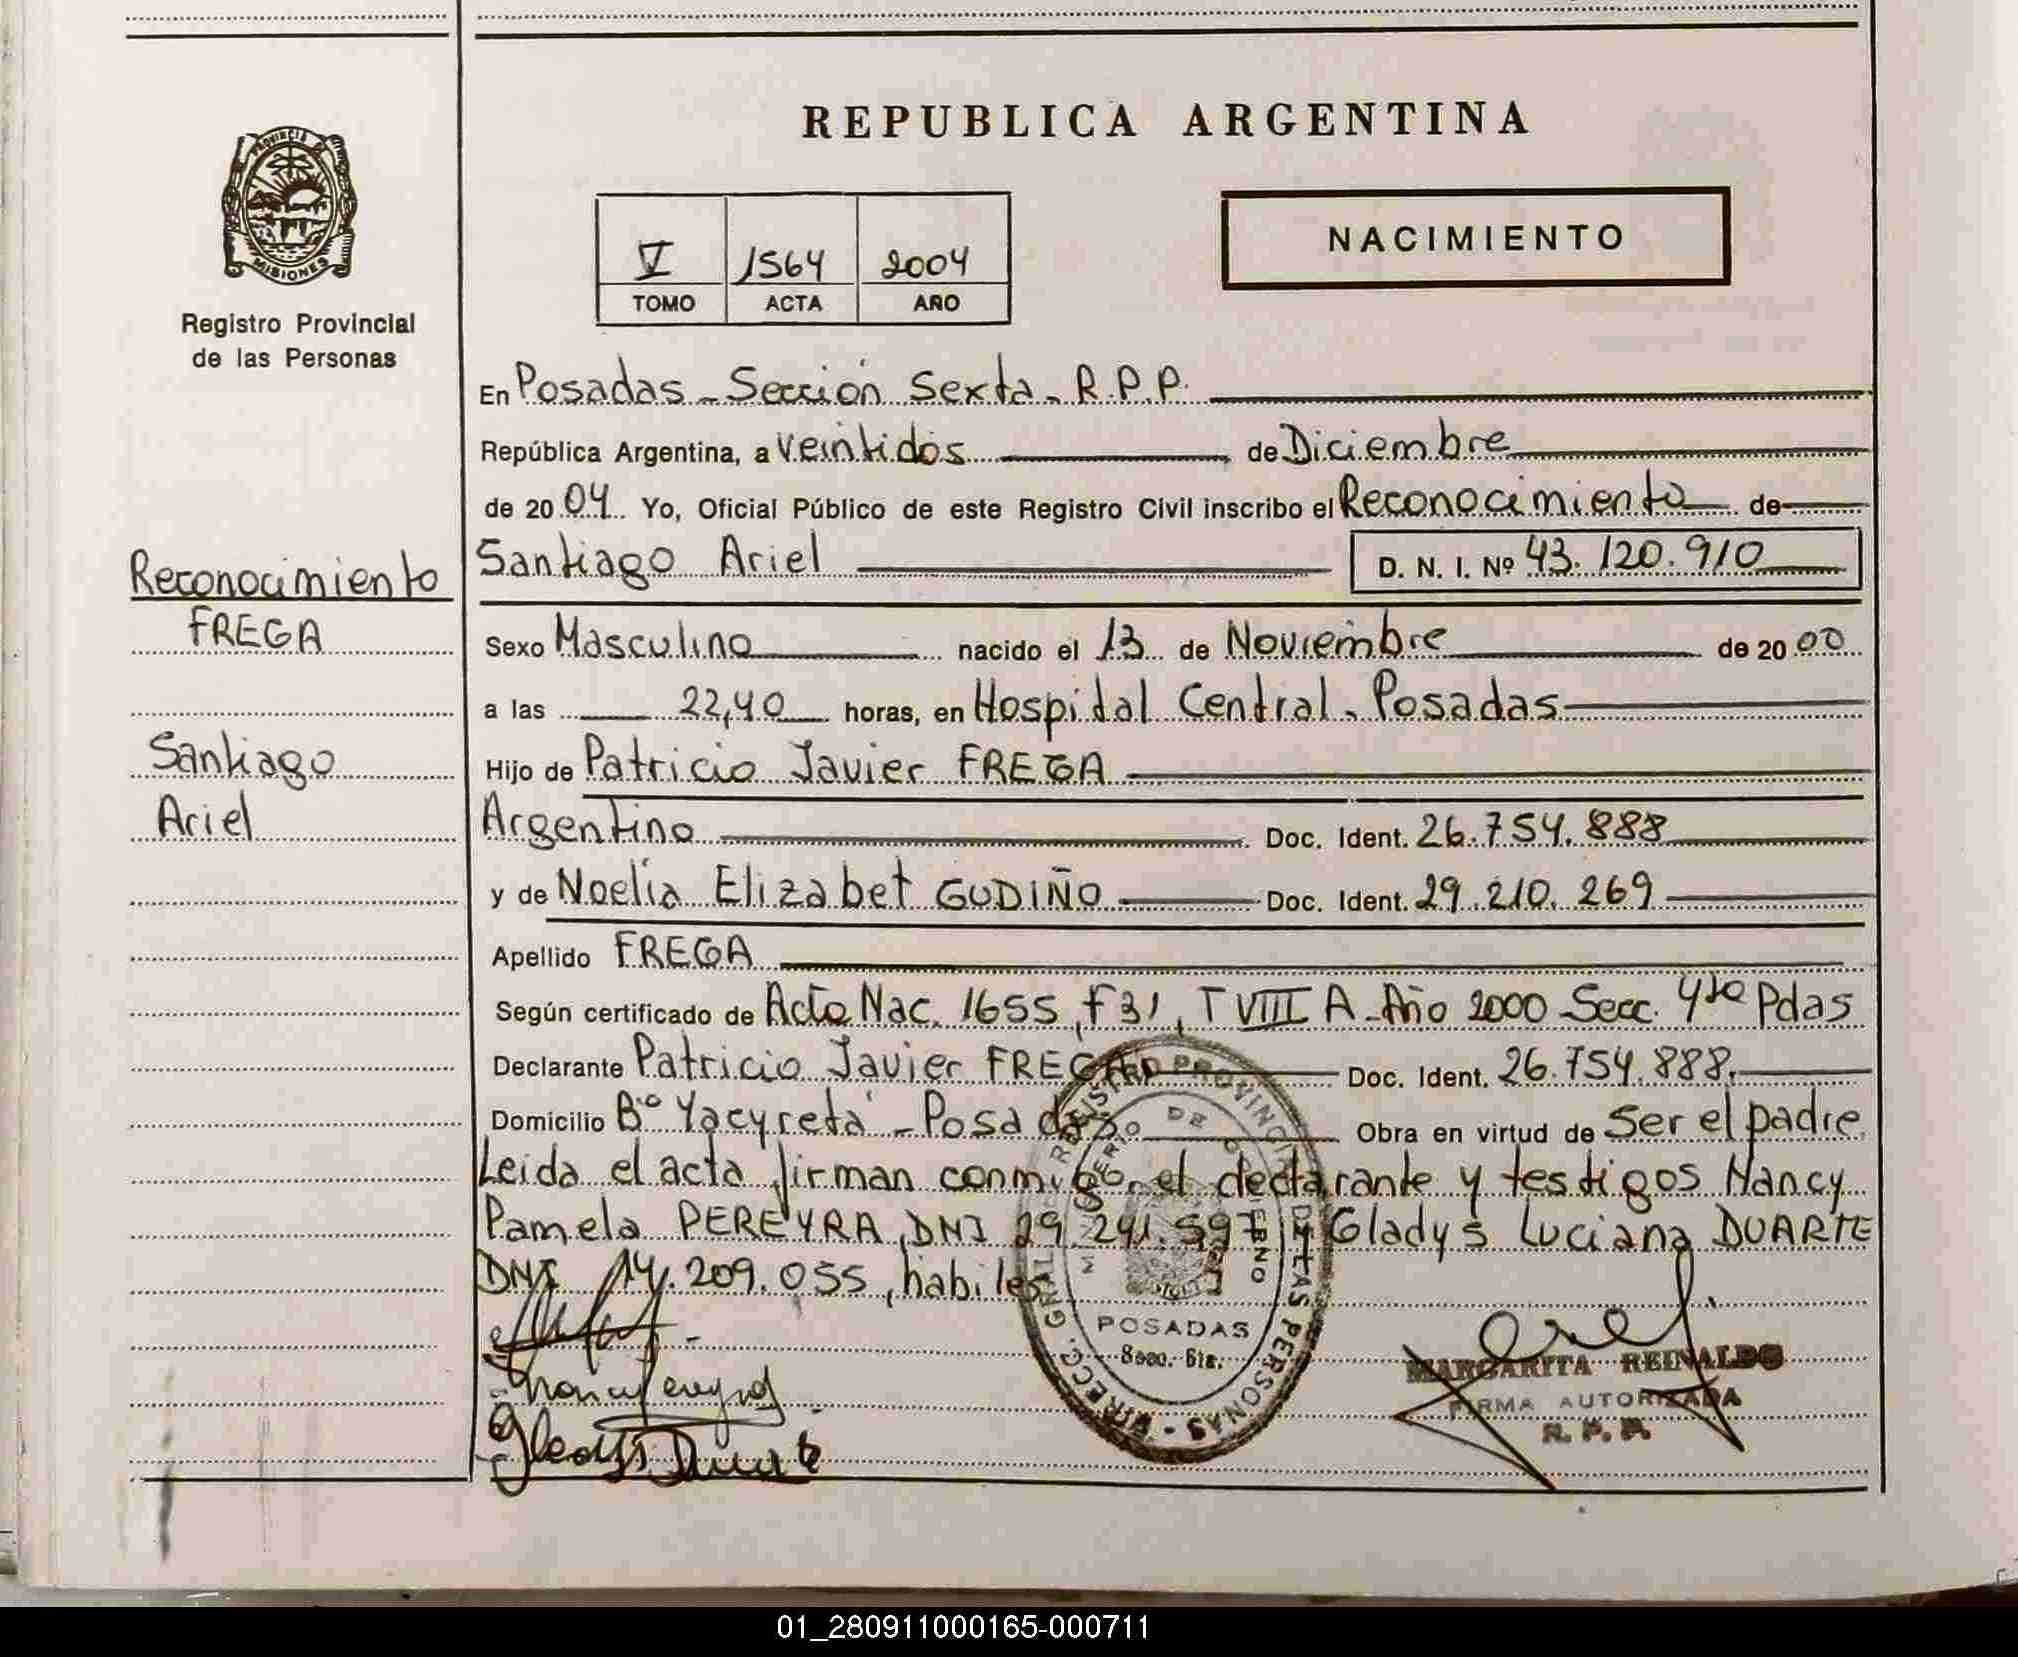 REPUBLICA ARGENTINA
PROVINCIA
MISIONES
Registro Provincial
de las Personas
V 1564 2004
TOMO ACTA AÑO
NACIMIENTO
En Posadas - Sección Sexta - R.P.P.
República Argentina, a Veintidós de Diciembre
de 2004 Yo, Oficial Público de este Registro Civil inscribo el Reconocimiento de
Santiago Ariel D. N. I. Nº 43.120.910
Reconocimiento
FREGA
Santiago
Ariel
Sexo Masculino nacido el 13 de Noviembre de 2000
a las 22,40 horas, en Hospital Central - Posadas
Hijo de Patricio Javier FREGA
Argentino Doc. Ident. 26.754.888
y de Noelia Elizabet GUDIÑO Doc. Ident. 29.210.269
Apellido FREGA
Según certificado de Acta Nac. 1655, F 31, T VIII A - Año 2000 Secc. 4ta Pdas
Declarante Patricio Javier FREGA Doc. Ident. 26.754.888.
Domicilio Bº Yacyretá - Posadas Obra en virtud de Ser el padre
Leida el acta firman conmigo, el declarante y testigos Nancy
Pamela PEREYRA, DNI 29.241.597 y Gladys Luciana DUARTE
DNI 14.209.055, habiles
DIRECC. GRAL. REGISTRO PROVINCIAL DE LAS PERSONAS
MINISTERIO DE GOBIERNO
POSADAS
Secc. 6ta.
Gladys Duarte
MARGARITA REINALDO
FIRMA AUTORIZADA
R. P. P.
01_280911000165-000711